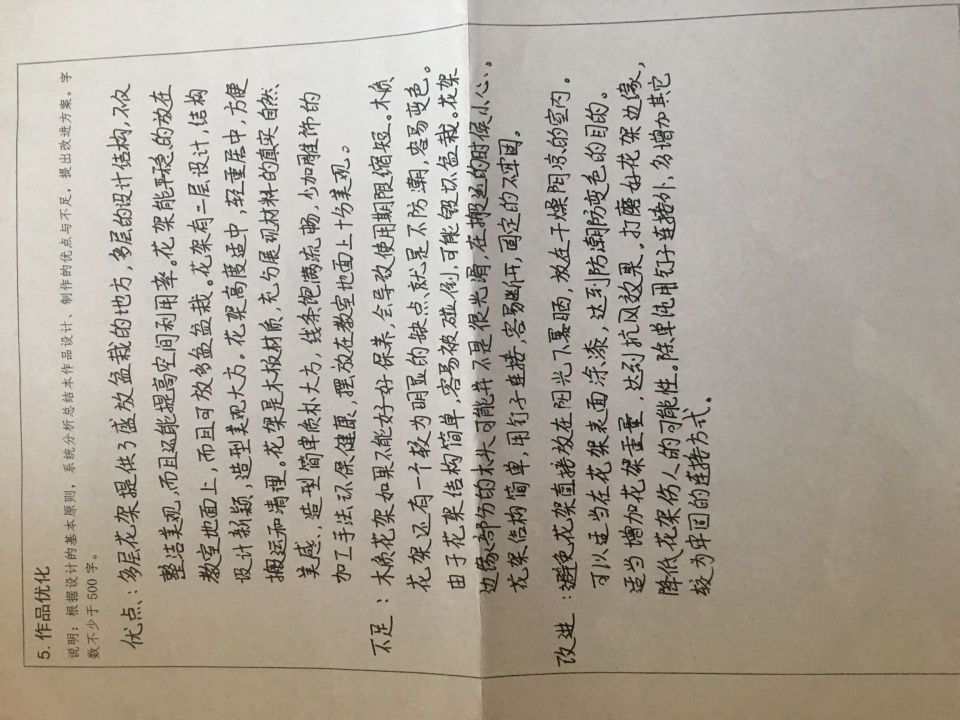 5. 作品优化
说明：根据设计的基本原则，系统分析总结本作品设计、制作的优点与不足，提出改进方案。字
数不少于500字。
优点：多层花架提供了盛放盆栽的地方，多层的设计结构，不仅
整洁美观，而且还能提高空间利用率。花架能平稳的放在
教室地面上，而且可放多盆盆栽。花架有二层设计，结构
设计新颖，造型美观大方。花架高度适中，轻重居中，方便
搬运和清理。花架是木板材质，充分展现材料的真实自然
美感，造型简单质朴大方，线条饱满流畅，少加雕饰的
加工手法环保健康，摆放在教室地面上十分美观。
不足：木质花架如果不能好好保养，会导致使用期限缩短。木质
花架还有一个较为明显的缺点就是不防潮，容易变色。
由于花架结构简单，容易被碰倒，可能毁坏盆栽。花架
边缘部份的木头可能并不是很光滑，在搬运的时候小心、
花架结构简单，用钉子连接，容易断开，固定的不牢固。
改进：避免花架直接放在阳光下暴晒，放在干燥阴凉的室内。
可以适当在花架表面涂漆，达到防潮防变色的目的。
适当增加花架重量，达到抗风效果。打磨好花架边缘，
降低花架伤人的可能性。除单纯用钉子连接外，多增加其它
较为牢固的连接方式。